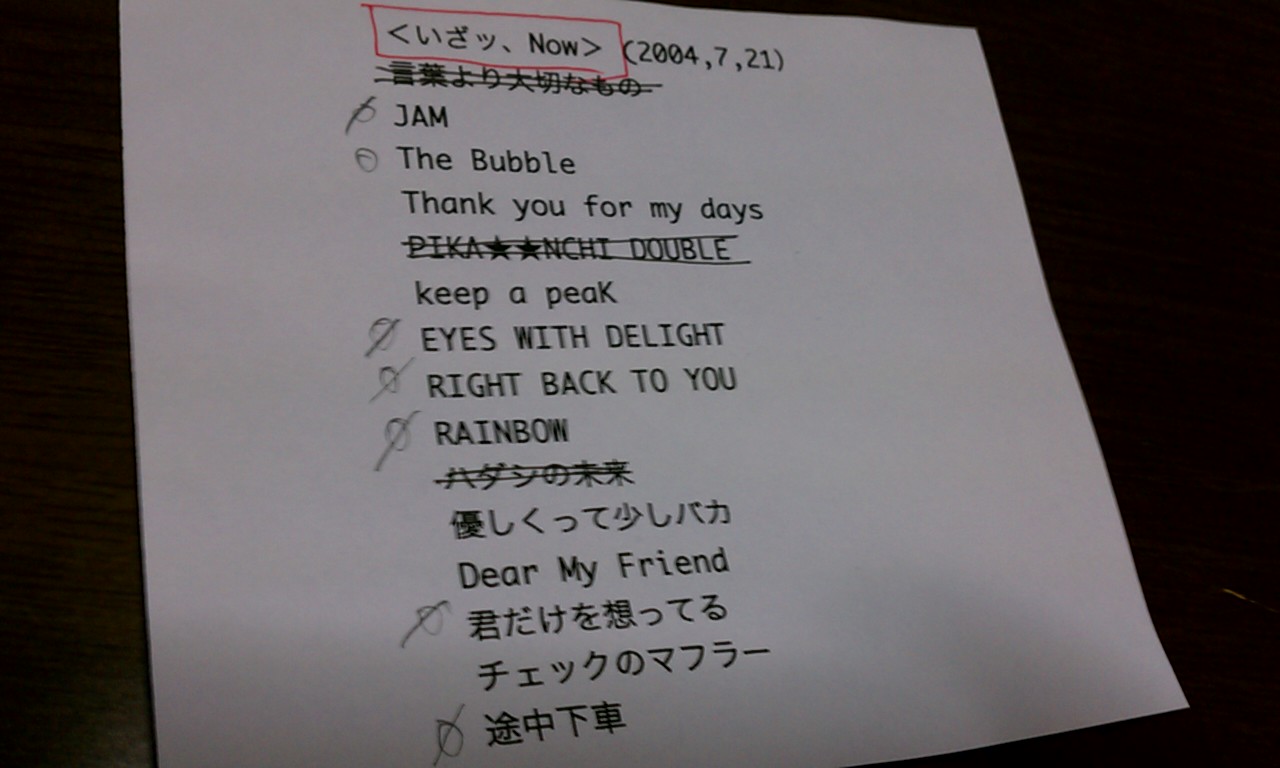 <いざッ、Now> (2004,7,21)
言葉より大切なもの
JAM
The Bubble
Thank you for my days
PIKA★★NCHI DOUBLE
keep a peaK
EYES WITH DELIGHT
RIGHT BACK TO YOU
RAINBOW
ハダシの未来
優しくって少しバカ
Dear My Friend
君だけを想ってる
チェックのマフラー
途中下車